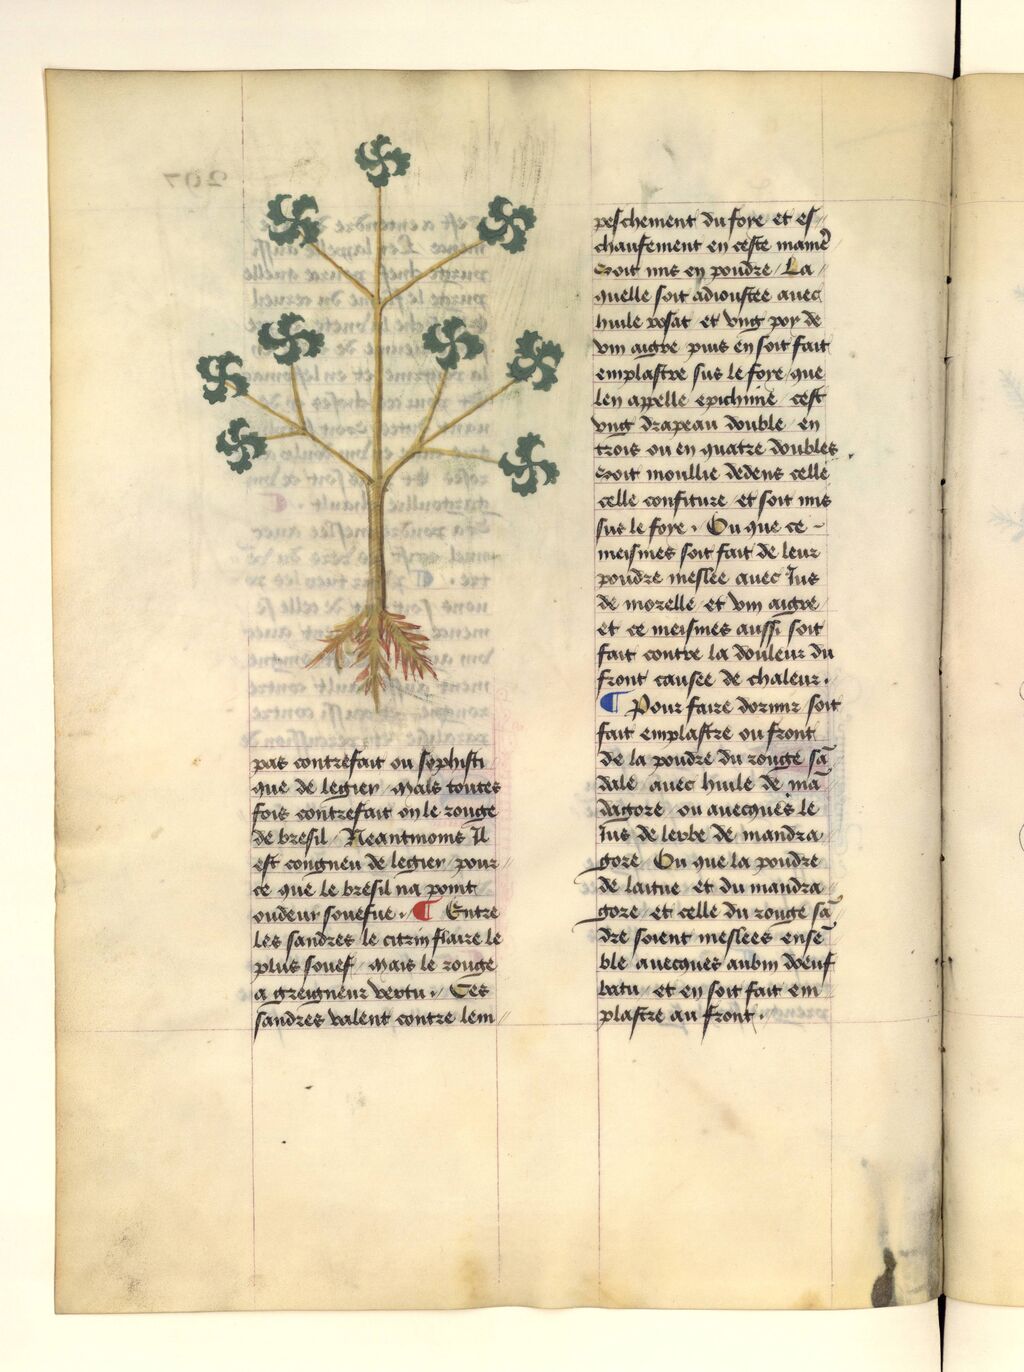 pas contrefait ou sophisti
que de legier / Mais toutes
fois contrefait on le rouge
de bresil / Neantmoins Il
est congneu de legier / pour
ce que le bresil na point
oudeur souefue. ¶ Entre
les sandres le citrin flaire le
plus souef / Mais le rouge
a greigneur vertu. / Ces
sandres valent contre lem
peschement du foye et es
chaufement en ceste maniẽ
Soit mis en poudre / La
quelle soit adioustee auec
huile rosat et vng poy de
vin aigre puis en soit fait
emplastre sus le foye / que
len appelle epichime / cest
vng drapeau double / en
trois ou en quatre doubles
Soit moullie dedens celle
celle confiture et soit mis
sus le foye. Ou que ce
meismes soit fait de leur
poudre meslee auec Jus
de morelle et vin aigre
et ce meismes aussi soit
fait contre la douleur du
front causee de chaleur.
¶ Pour faire dormir soit
fait emplastre ou front
de la poudre du rouge sã
dale auec huile de mã
dagore ou auecques le
Jus de lerbe de mandra
gore Ou que la poudre
de laitue et du mandra
gore et celle du rouge sã
dre soient meslees ensẽ
ble auecques aubin doeuf
batu et en soit fait em
plastre au front.